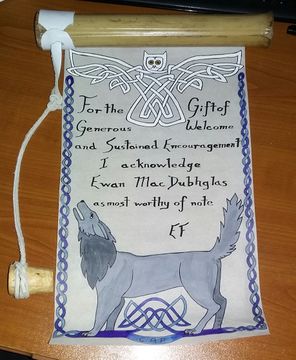 For the Gift of
Generous Welcome
and Sustained Encouragement
I acknowledge
Ewan Mac Dubhglas
as most worthy of note
EF